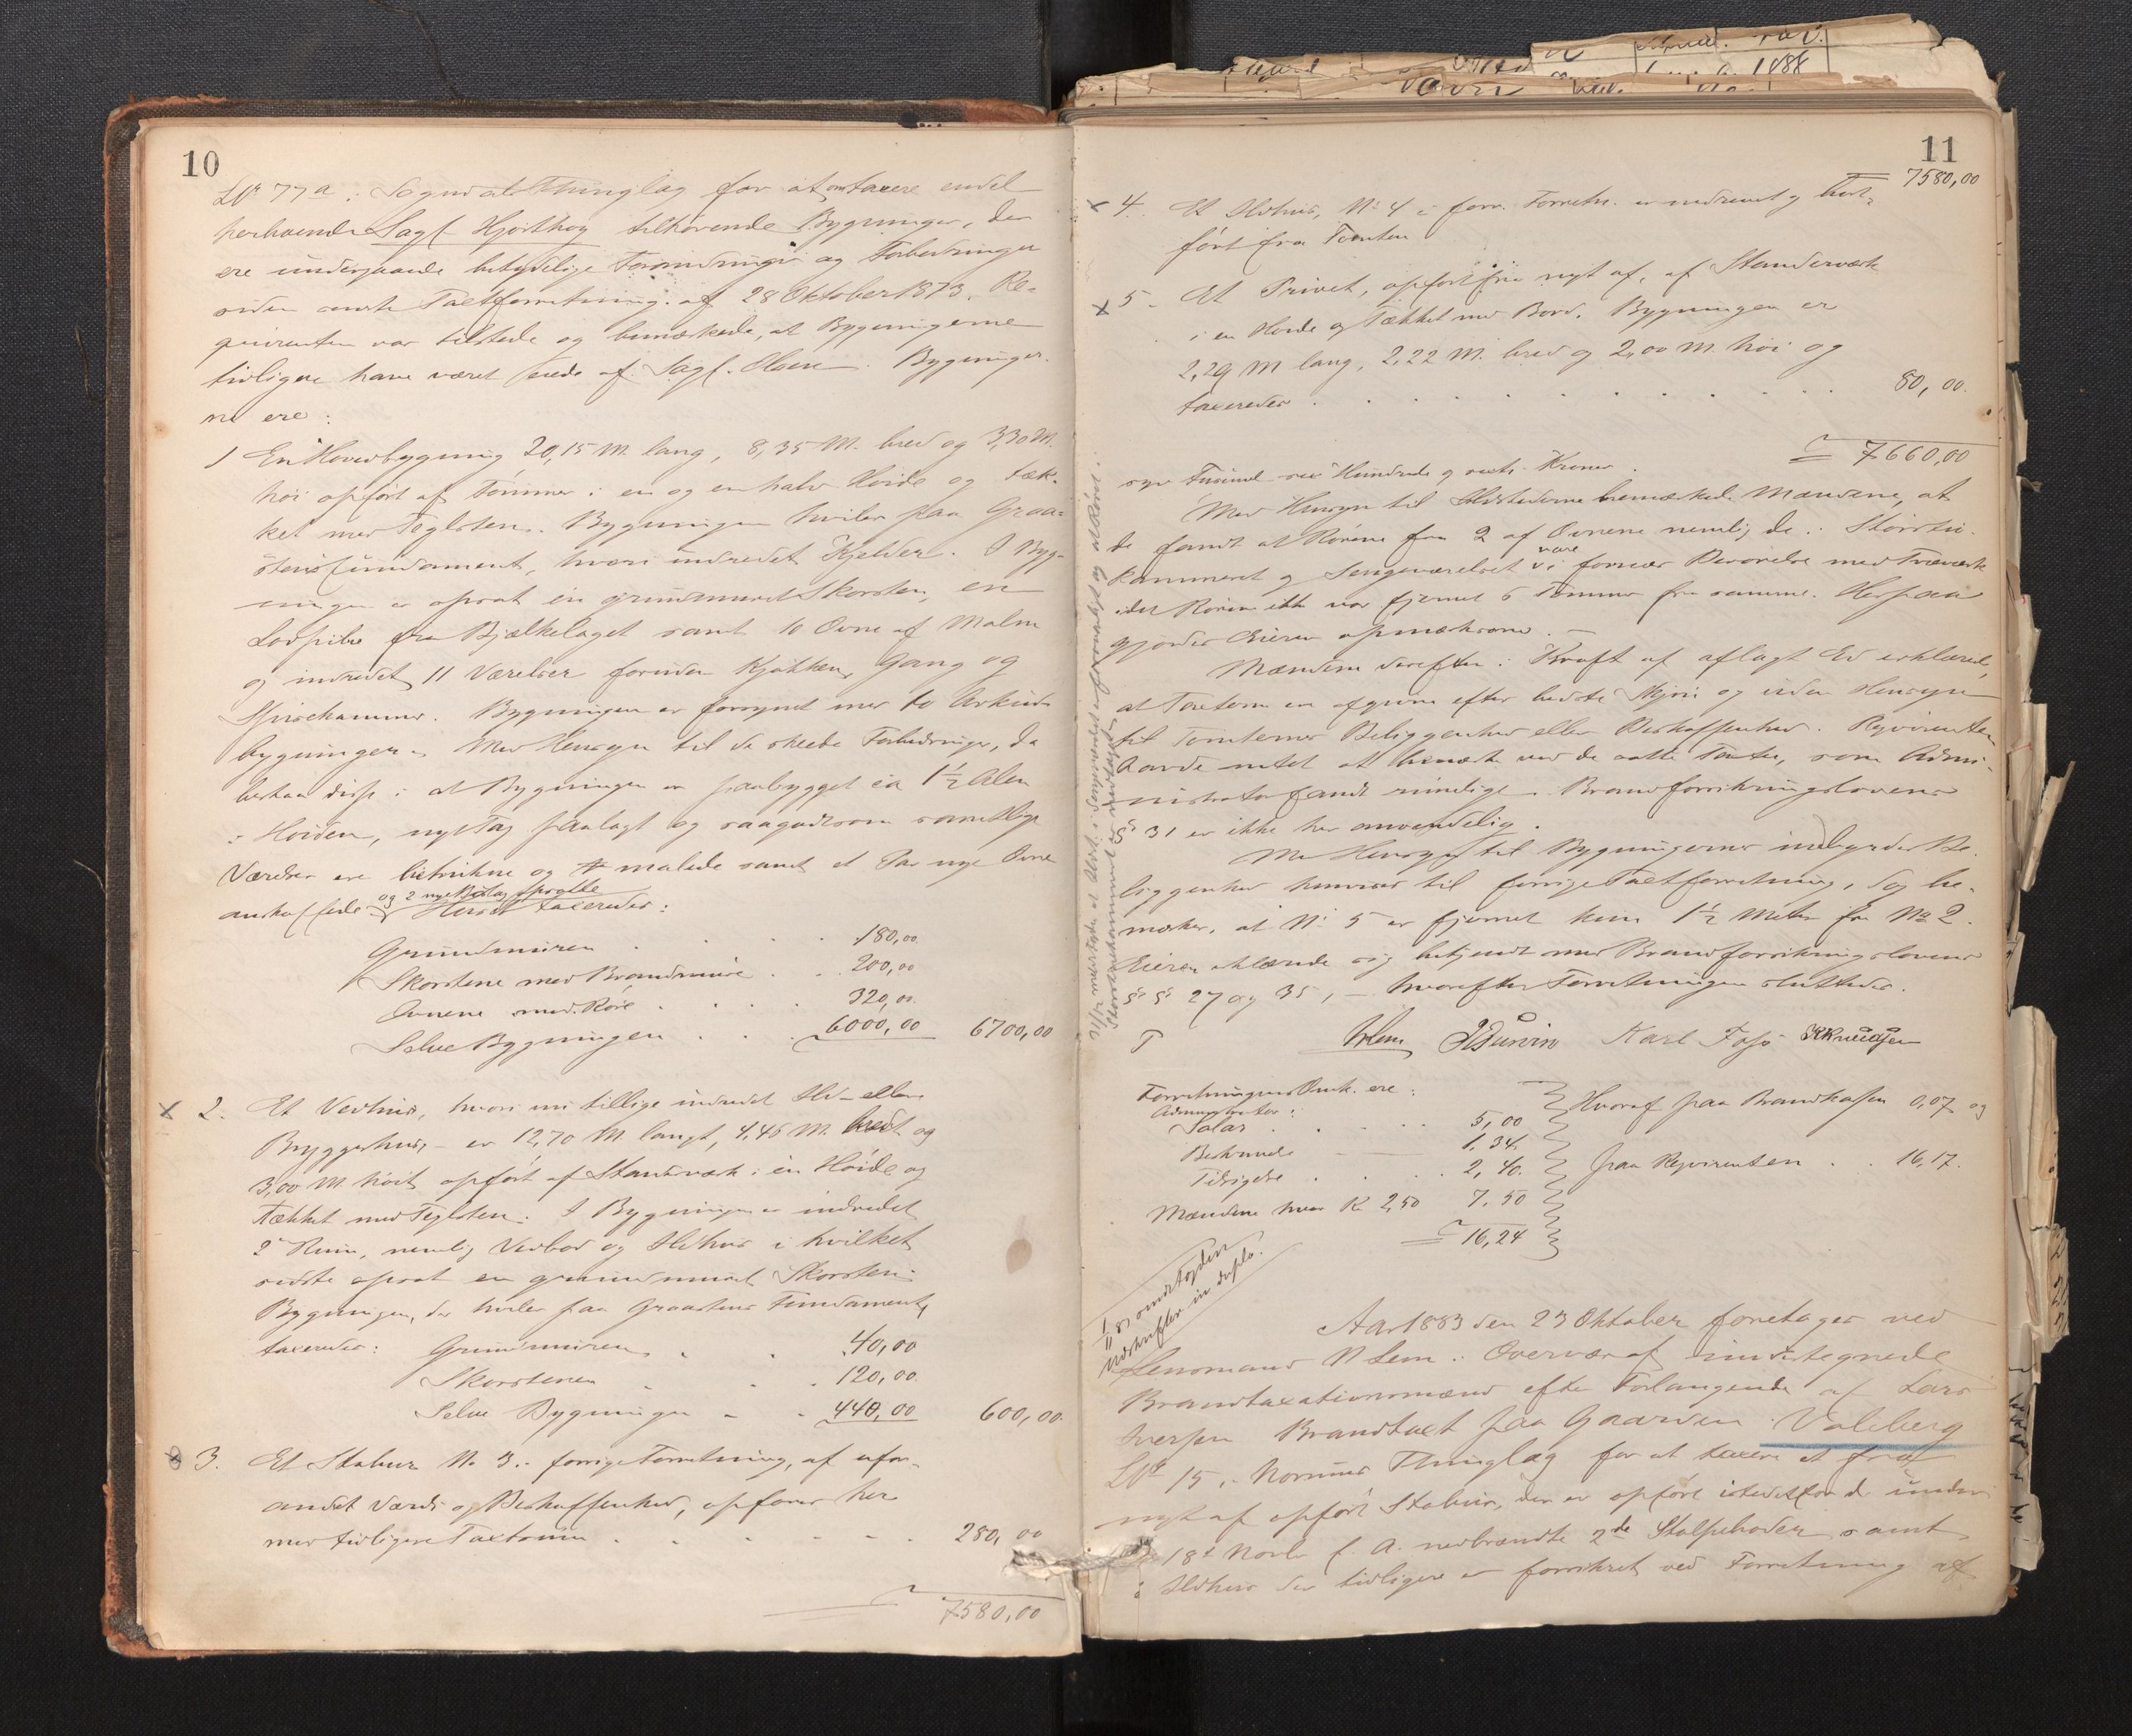 10
LN 77a i Sogndals Thinglag for at omtaxere endel
Sagf. Hjorthøy tilhørende Bygninger, der
ere undergaaede betydelige Forandringer og Forbedringer
siden sidste Taxtforretning af 28 Oktober 1873. Re-
qvirenten var tilstede og bemærkede, at Bygningerne
tidligere have været eiede af Sagf. . Bygninger-
ne ere:
1 En Hovedbygning 20,15 M. lang, 8,35 M. bred og 3,30 M.
høi opført af Tømmer i en og en halv Høide og tæk-
ket med Teglsten. Bygningen hviler paa Graa-
stensfundament, hvori indredet Kjelder. I Byg-
ningen er opsat en grundmuret Skorsten, en
Lodpibe fra Bjælkelaget samt 10 Ovne af Malm
og indredet 11 Værelser foruden Kjøkken, Gang og
Spisekammer. Bygningen er forsynet med to Arkud-
bygninger. Med Hensyn til de skeede Forbedringer, da
bestaa disse i at Bygningen er paabygget ca 1½ Alen
i Høiden, nyt Tag paalagt og saagodtsom samtlige
Værelser ere betrukne og malede samt et Par nye Ovne
og 2 nye opsatte
anskaffede. Huset taxeredes:
Grundmuren . . . 180,00
Skorstene med Brandmure . . 200,00
Ovnene med Rør . . . 320,00
Selve Bygningen . . . 6000,00 6700,00
x 2. Et Vedhus, hvori nu tillige indredet Ild- eller
Bryggerhus, er 12,70 M. langt, 4,45 M. bredt og
3,00 M. høit opført af Standværk i en Høide og
tækket med Teglsten. I Bygningen er indredet
2 Rum, nemlig Vedbod og Ildhus i hvilket
sidste opsat en grundmuret Skorsten.
Bygningen, der hviler paa Graastens Fundament,
taxeredes: Grundmuren . . 40,00
Skorstenen . . . 120,00
Selve Bygningen . . 440,00 600,00
x 3. Et Stabur No 3 i forrige Forretning, af ufor-
andret Værdi og Beskaffenhed, opføres her
med tidligere Taxtsum . . . . . 280,00
7580,00
11
7580,00
x 4. Et Ildhus, No 4 i forr. Forretn. er nedrevet og bort-
ført fra Tomten
x 5. Et Privet, opført fra nyt af, af Standerværk
i en Høide og tækket med Bord. Bygningen er
2,29 M lang, 2,22 M. bred og 2,00 M. høi og
taxeredes . . . . . . . . . . 80,00.
7660,00
syv Tusind sex Hundrede og sexti Kroner.
Med Hensyn til Ildstederne bemærkede Mændene, at
de fandt at Rørene fra 2 af Ovnene nemlig de i
kammeret og Sengeværelset vare i for nær Berørelse med Træværk
idet Rørene ikke var fjernet 6 Tommer fra samme. Herpaa
gjordes Eieren opmærksom. –
Mændene derefter i Kraft af aflagt Ed erklærede,
at Taxterne er afgivne efter bedste Skjøn og uden Hensyn
til Tomternes Beliggenhed eller Beskaffenhed. Reqvirenten
havde intet at bemærke ved de satte Taxter, som Admi-
nistrator fandt rimelige. Brandforsikringslovens
§ 31 er ikke her anvendelig.
Med Hensyn til Bygningernes indbyrdes Be-
liggenhed henvises til forrige Taxtforretning, dog be-
mærkes, at No 5 er fjernet kun 1½ Meter fra No 2.
Eieren erklærede sig bekjendt med Brandforsikringslovens
§§ 27 og 35, – hvorefter Forretningen sluttedes.
NLem Karl Fosø KKnudsen
Forretningens Omk. ere:
Administrator:
Salær . . . . 5,00
1,34
2,40
Mændene hver Kr 2,50 7,50
16,24
Hvoraf paa Brandkassen 0,07 og
paa Reqvirenten . . 16,17.
in duplo.
Aar 1883 den 23 Oktober foretoges ved
Lensmand N Lem i Overvær af undertegnede
Brandtaxationsmænd efter Forlangende af Lars
Iversen Brandtaxt paa Gaarden Valeberg
LN 15, i Norums Thinglag for at taxere et fra
nyt af opført Stabur, der er opført istedetfor de under
18de Novbr f. A. nedbrændte 2de Stolpeboder samt
Ildhus der tidligere er forsikret ved Forretning af